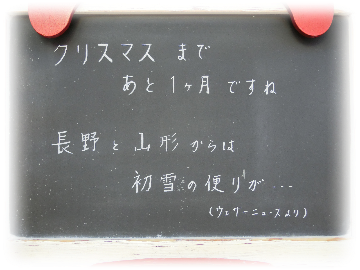 クリスマス まで
あと 1ヶ月 ですね
長野 と 山形 からは
初雪 の 便り が …
(ウェザーニュースより)